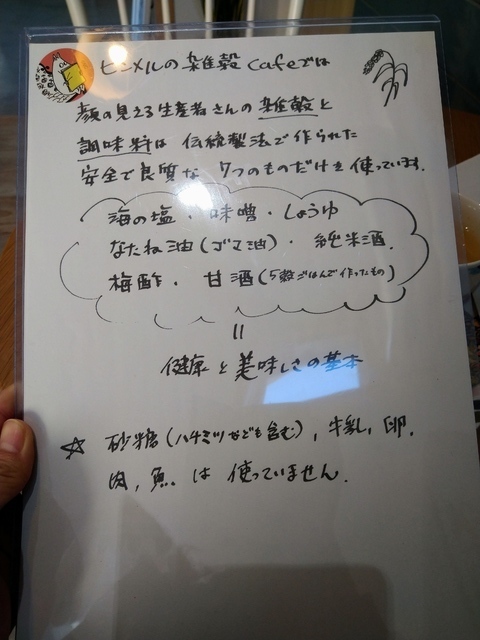 ヒンメルの雑穀cafeでは
顔の見える生産者さんの雑穀と
調味料は伝統製法で作られた
安全で良質な7つのものだけを使っています。
海の塩・味噌・しょうゆ
なたね油(ゴマ油)・純米酒.
梅酢・甘酒(5穀ごはんで作ったもの)
=
健康と美味しさの基本
☆ 砂糖(ハチミツなども含む), 牛乳, 卵,
肉, 魚. は使っていません.